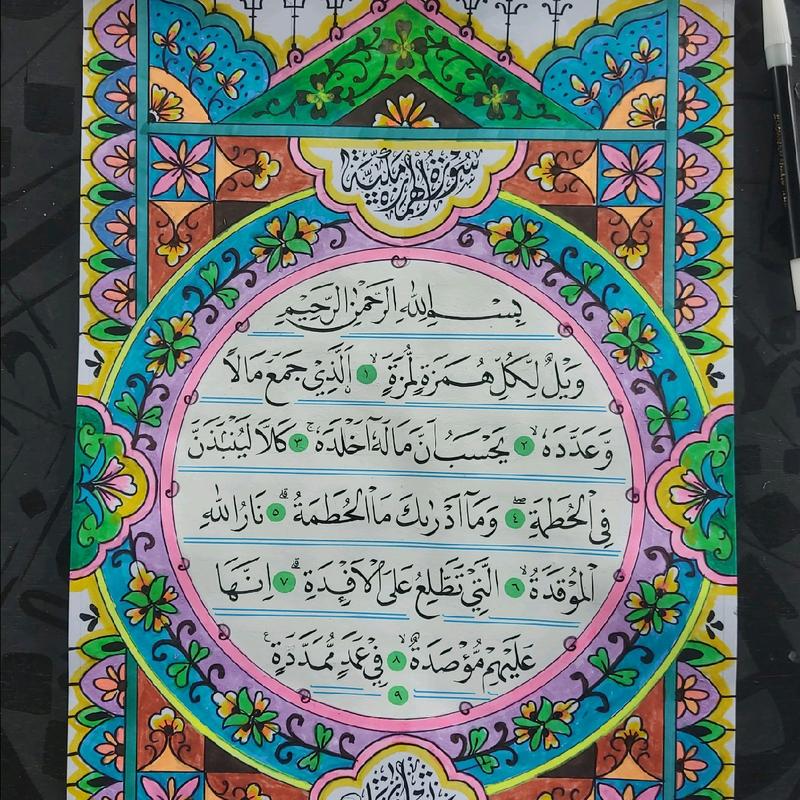 سُوْرَةُ الْهُمَزَةِ مَكِّيَّةٌ
بِسْمِ اللهِ الرَّحْمٰنِ الرَّحِيْمِ
وَيْلٌ لِّكُلِّ هُمَزَةٍ لُّمَزَةٍۙ ١ اۨلَّذِيْ جَمَعَ مَالًا
وَّعَدَّدَهٗۙ ٢ يَحْسَبُ اَنَّ مَالَهٗٓ اَخْلَدَهٗۚ ٣ كَلَّا لَيُنْۢبَذَنَّ
فِى الْحُطَمَةِۖ ٤ وَمَآ اَدْرٰىكَ مَا الْحُطَمَةُۗ ٥ نَارُ اللهِ
الْمُوْقَدَةُۙ ٦ الَّتِيْ تَطَّلِعُ عَلَى الْاَفْـِٕدَةِۗ ٧ اِنَّهَا
عَلَيْهِمْ مُّؤْصَدَةٌۙ ٨ فِيْ عَمَدٍ مُّمَدَّدَةٍࣖ
٩